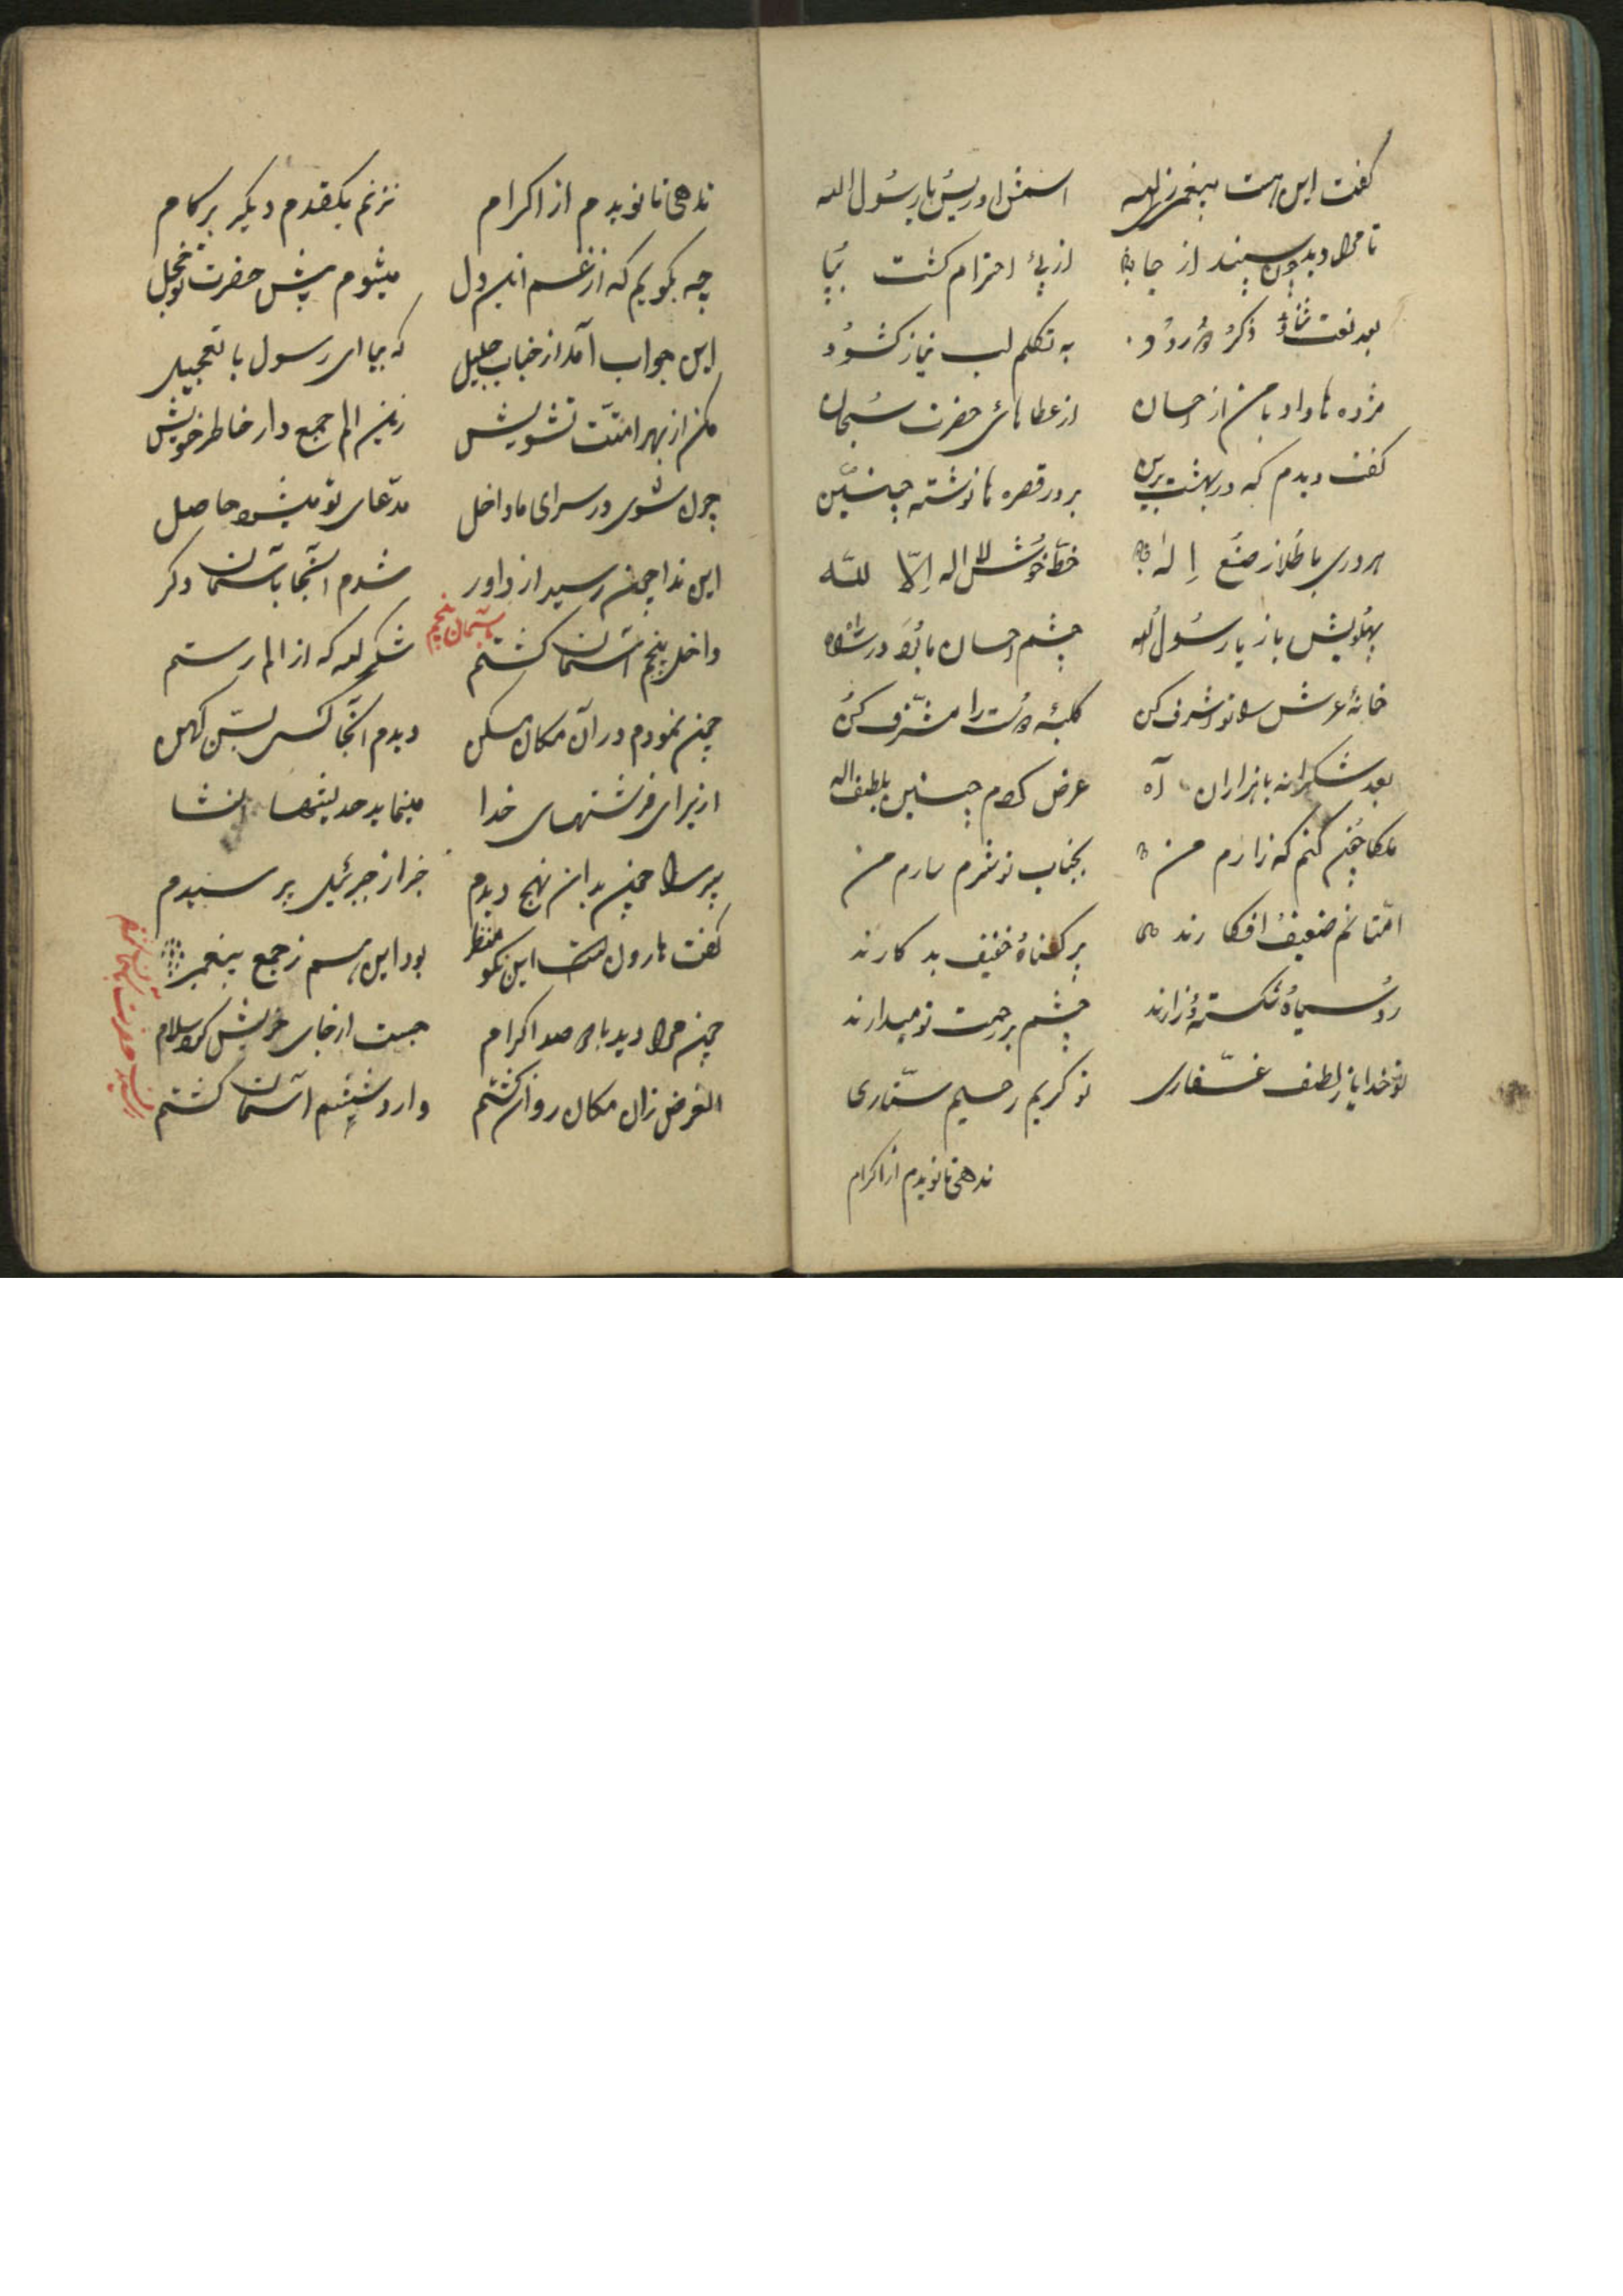 گفت این است پیغمبر زاله اسمش ادریس یا رسول الله
تا مرا دید چون سپند از جا از پئ احترام گشت بپا
بعد نعت ثنا و ذکر درود به تکلم لب نیاز گشود
مژده ها داد با من از احسان از عطاهائ حضرت سبحان
گفت دیدم که در بهشت برین بر در قصر ها نوشته چنین
هر دری با طلا ز صنع اله خط خوش لا اله الا لله
پهلویش باز یا رسول الله چشم احسان ما بود در راه
خانهٔ عرش را تو مشرف کن کلبهٔ دوست را مشرف کن
بعد شکرانه با هزاران آه عرض کردم چنین بلطف اله
ملکا چون کنم که زارم من بجناب تو شرم دارم من
امتانم ضعیف افکارند پر گناه خفیف بد کارند
رو سیاه شکسته و زارند چشم بر رحمت تو میدارند
تو خدایا ز لطف غفاری تو کریم رحیم ستاری
ندهی تا نویدم از اکرام
ندهی تا نویدم از اکرام نزنم یکقدم دیگر بر کام
چه بگویم که از غم این دل میشوم پیش حضرت تو خجل
این جواب آمد از جناب جلیل که بیا ای رسول با تعجیل
مکن از بهر امتت تشویش زین الم جمع دار خاطر خویش
چون شوی در سرای ما داخل مدعای تو میشود حاصل
این ندا چون رسید از داور شدم آنجا بآسمان دگر
بآسمان پنجم
داخل پنجم آسمان گشتم شکر لله که از الم رستم
چون نمودم در آن مکان مسکن دیدم آنجا کسی بسن کهن
از برای فرشتهای خدا مینماید حدیثها انشا
پیر را چون بدان نهج دیدم خبر از جبرئیل پرسیدم
گفت هارون است این نکو منظر بود این هم ز جمع پیغمبر
چون مرا دید با صد اکرام جست از جای خویش کرد سلام
الغرض زان مکان روان گشتم وارد ششم آسمان گشتم